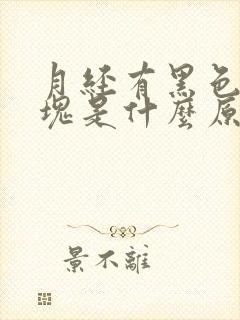 月经有黑色
块是什麼原
景不離